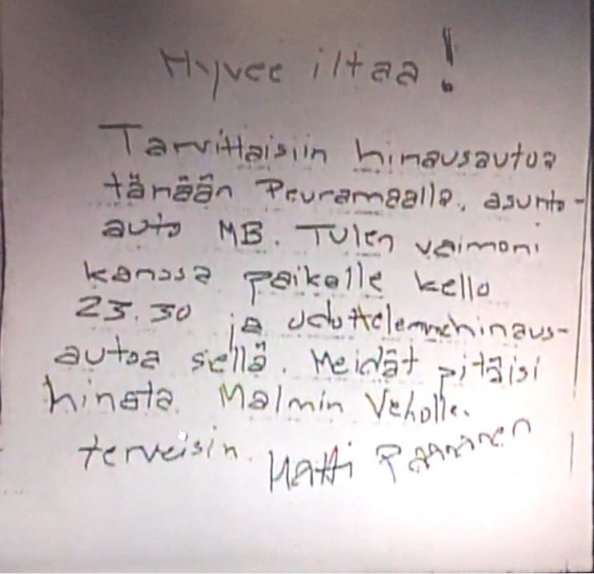 Hyvee iltaa!
Tarvittaisiin hinausautoa
tänään Peuramaalla, asunto-
auto MB. Tulen vaimoni
kanssa paikalle kello
23.30 ja odottelemmehinaus-
autoa siellä. Meidät pitäisi
hinata Malmin Veholle.
terveisin. Matti Paananen